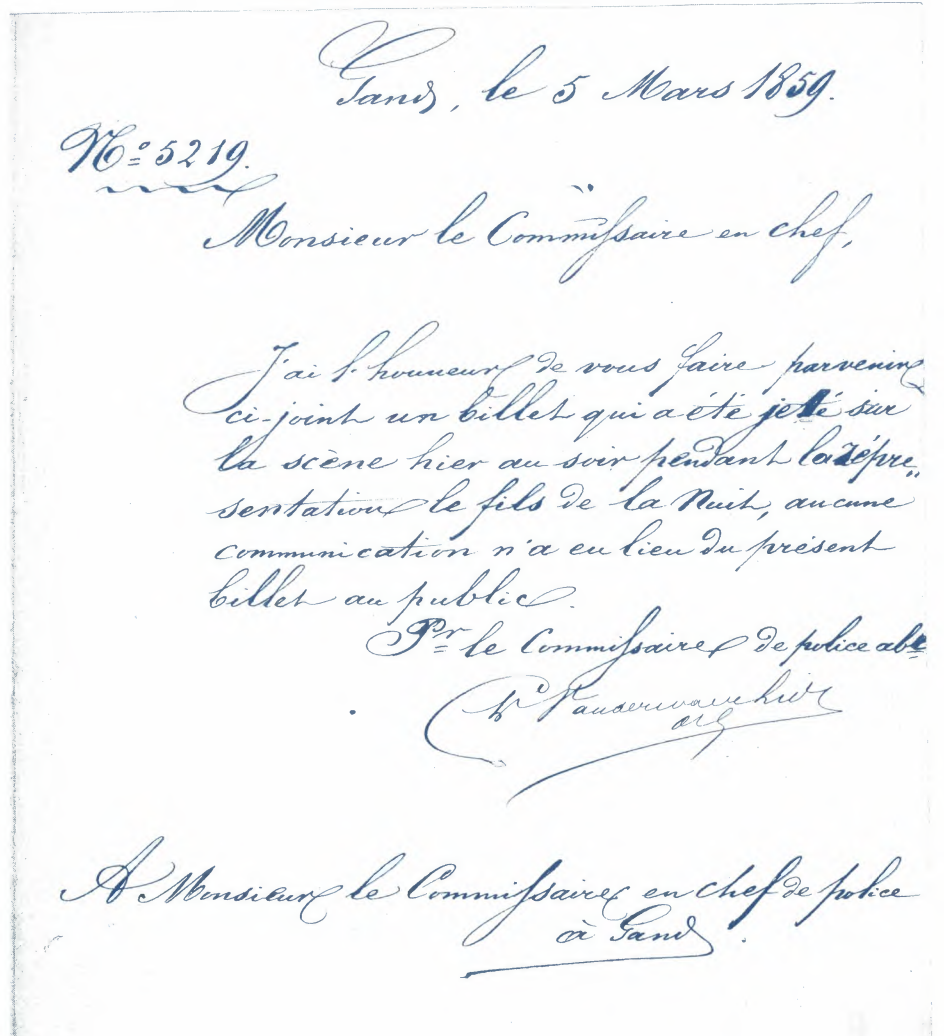 Gand, le 5 Mars 1859.
Nº 5219.
Monsieur le Commissaire en chef,
J'ai l'honneur de vous faire parvenir
ci-joint un billet qui a été jeté sur
la scène hier au soir pendant la répre„
sentation le fils de la Nuit, aucune
communication n'a eu lieu du présent
billet au public.
Pr le Commissaire de police abt
A Monsieur le Commissaire en chef de police
à Gand.